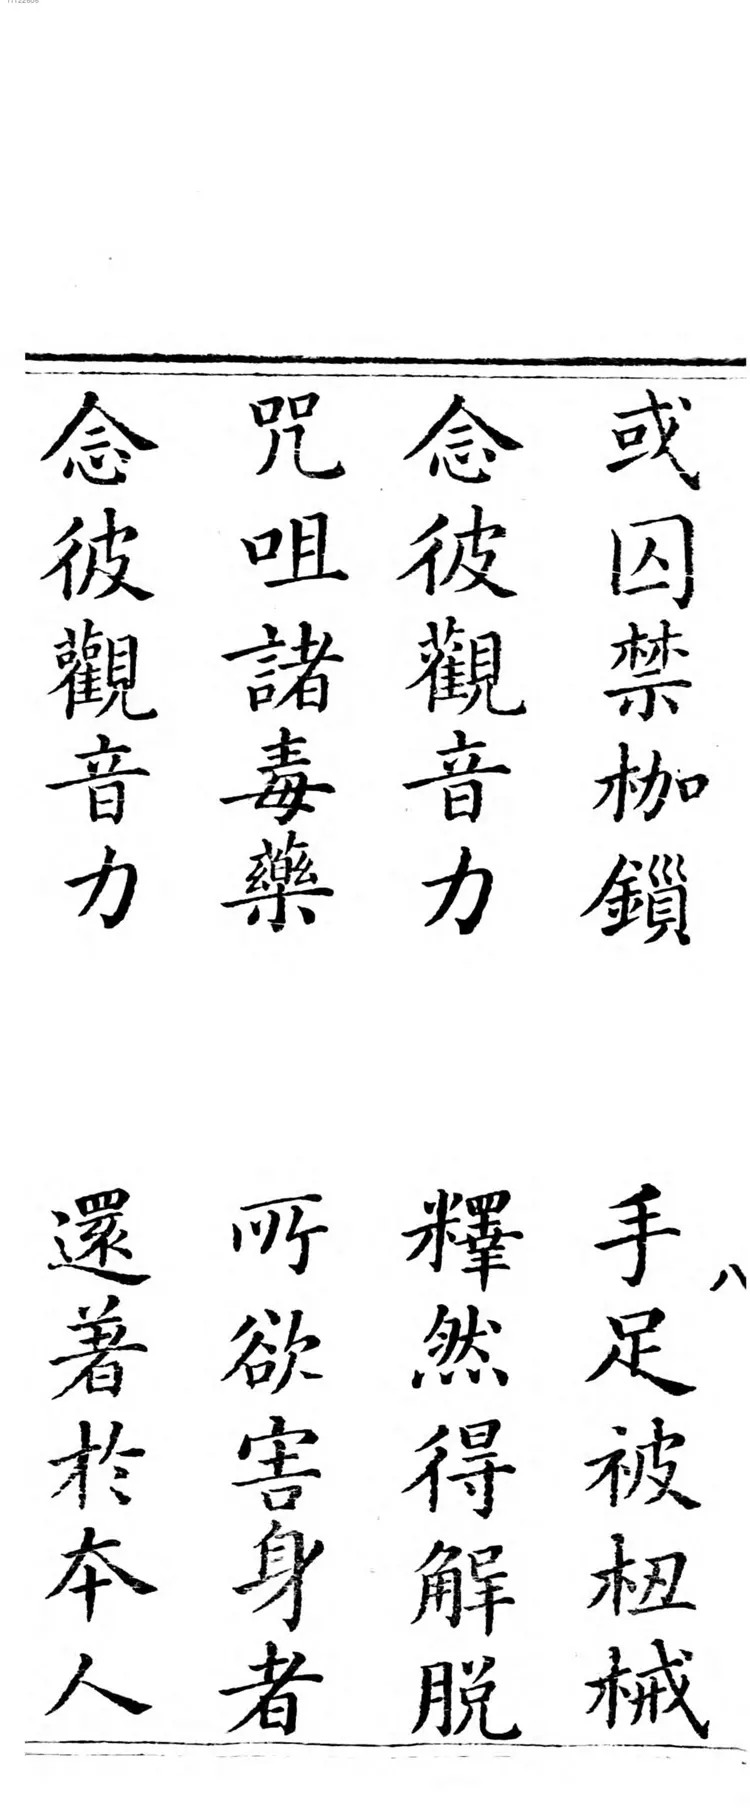 或囚禁枷鎻　手足被杻械
念彼觀音力　釋然得解脱
咒咀諸毒藥　所欲害身者
念彼觀音力　還著於本人
八